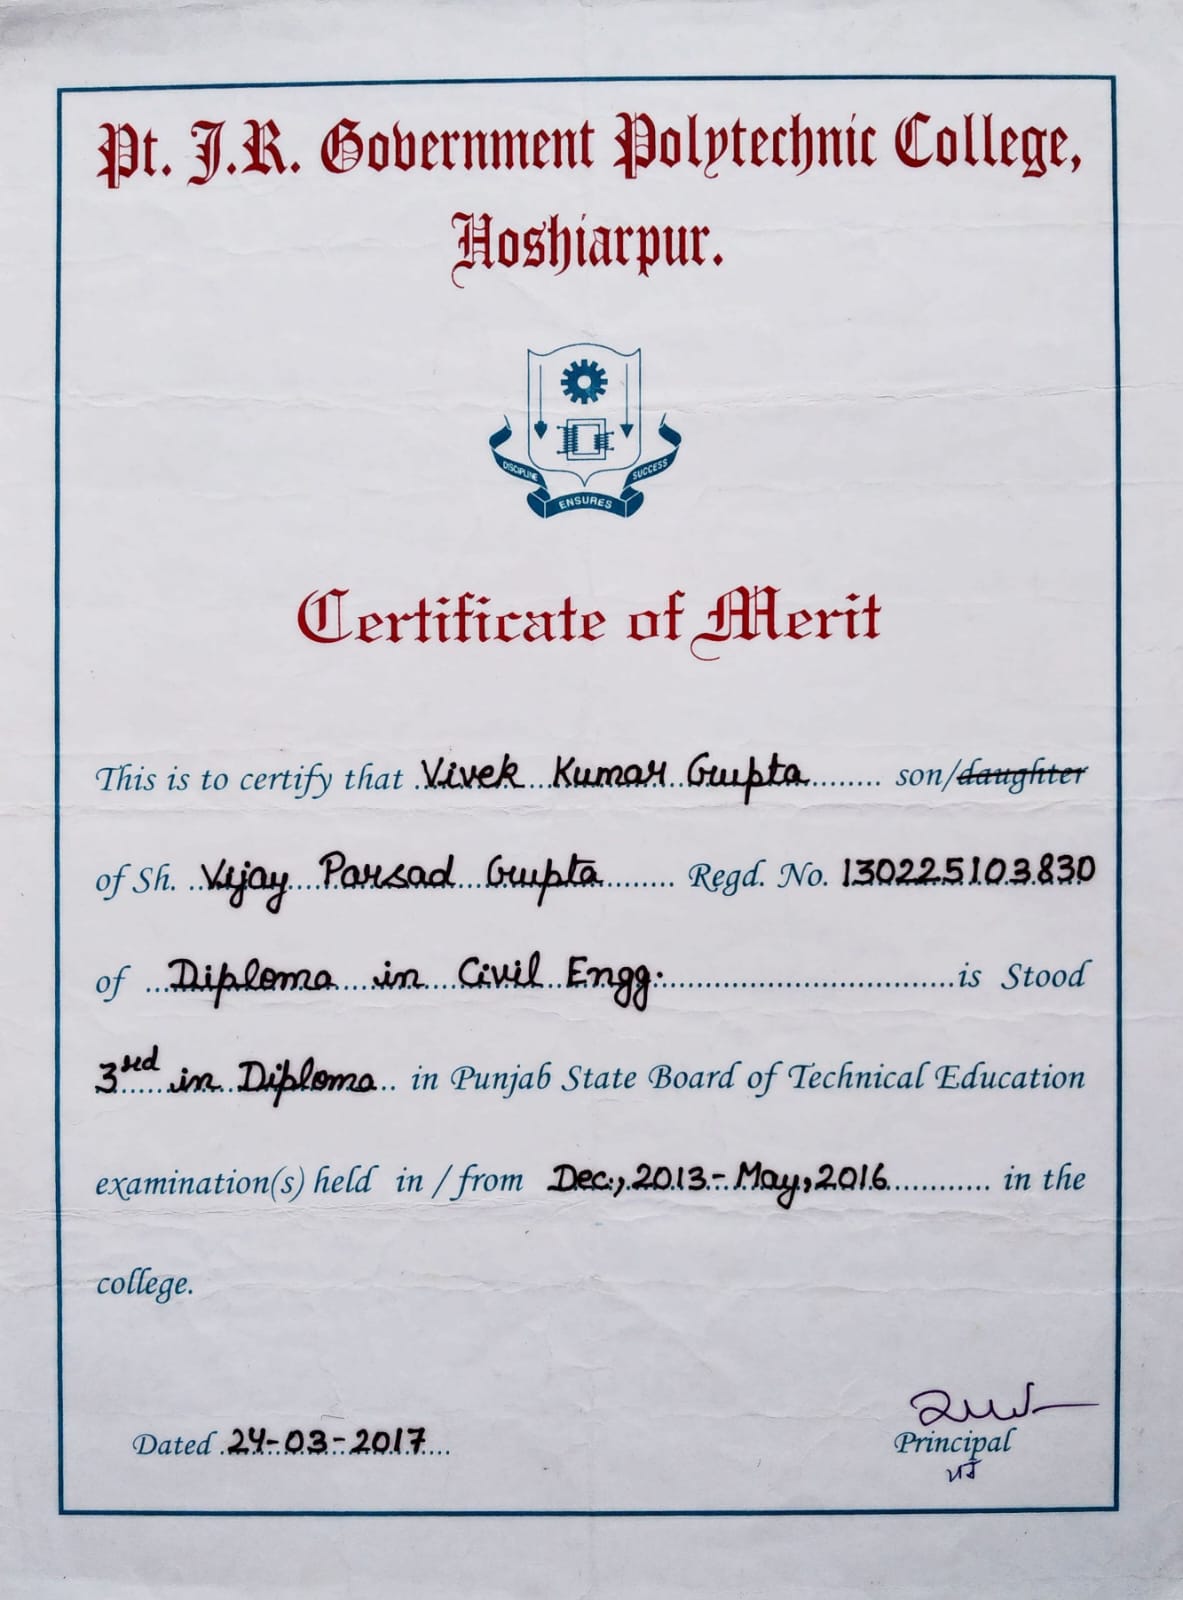 Pt. J.R. Government Polytechnic College,
Hoshiarpur.
DISCIPLINE ENSURES SUCCESS
Certificate of Merit
This is to certify that Vivek Kumar Gupta son/daughter
of Sh. Vijay Parsad Gupta Regd. No. 130225103830
of Diploma in Civil Engg. is Stood
3rd in Diploma in Punjab State Board of Technical Education
examination(s) held in / from Dec., 2013 - May, 2016 in the
college.
Dated 24-03-2017
Principal